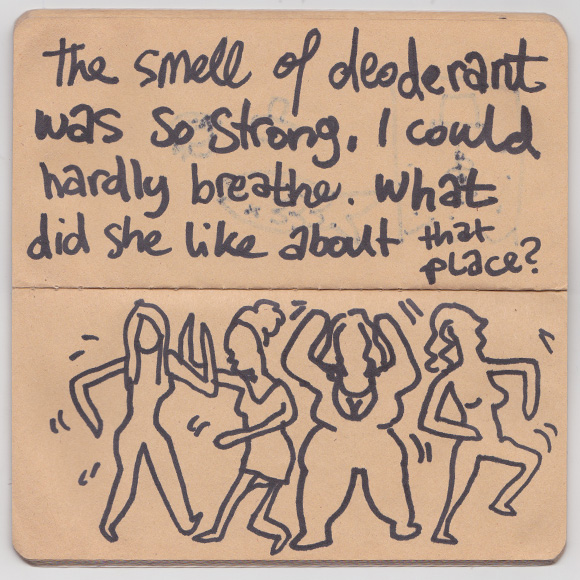 the smell of deoderant
was so strong, I could
hardly breathe. what
did she like about that
place?